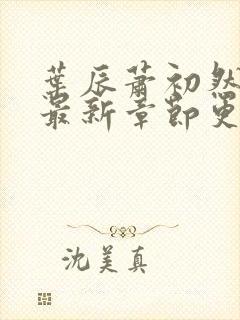 葉辰蕭初然
最新章節更
沈美真